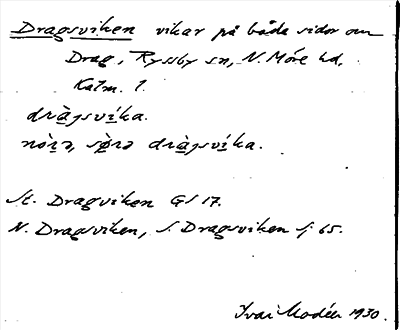 Dragsviken vikar på båda sidor om
Drag, Ryssby sn, N. Möre hd,
Kalm. l.
dràgsvíka.
nò̤rə, sø̀rə dràgsvíka.
St. Dragviken GS 17.
N. Dragsviken, S. Dragsviken Sj 65.
Ivar Modéer 1930.